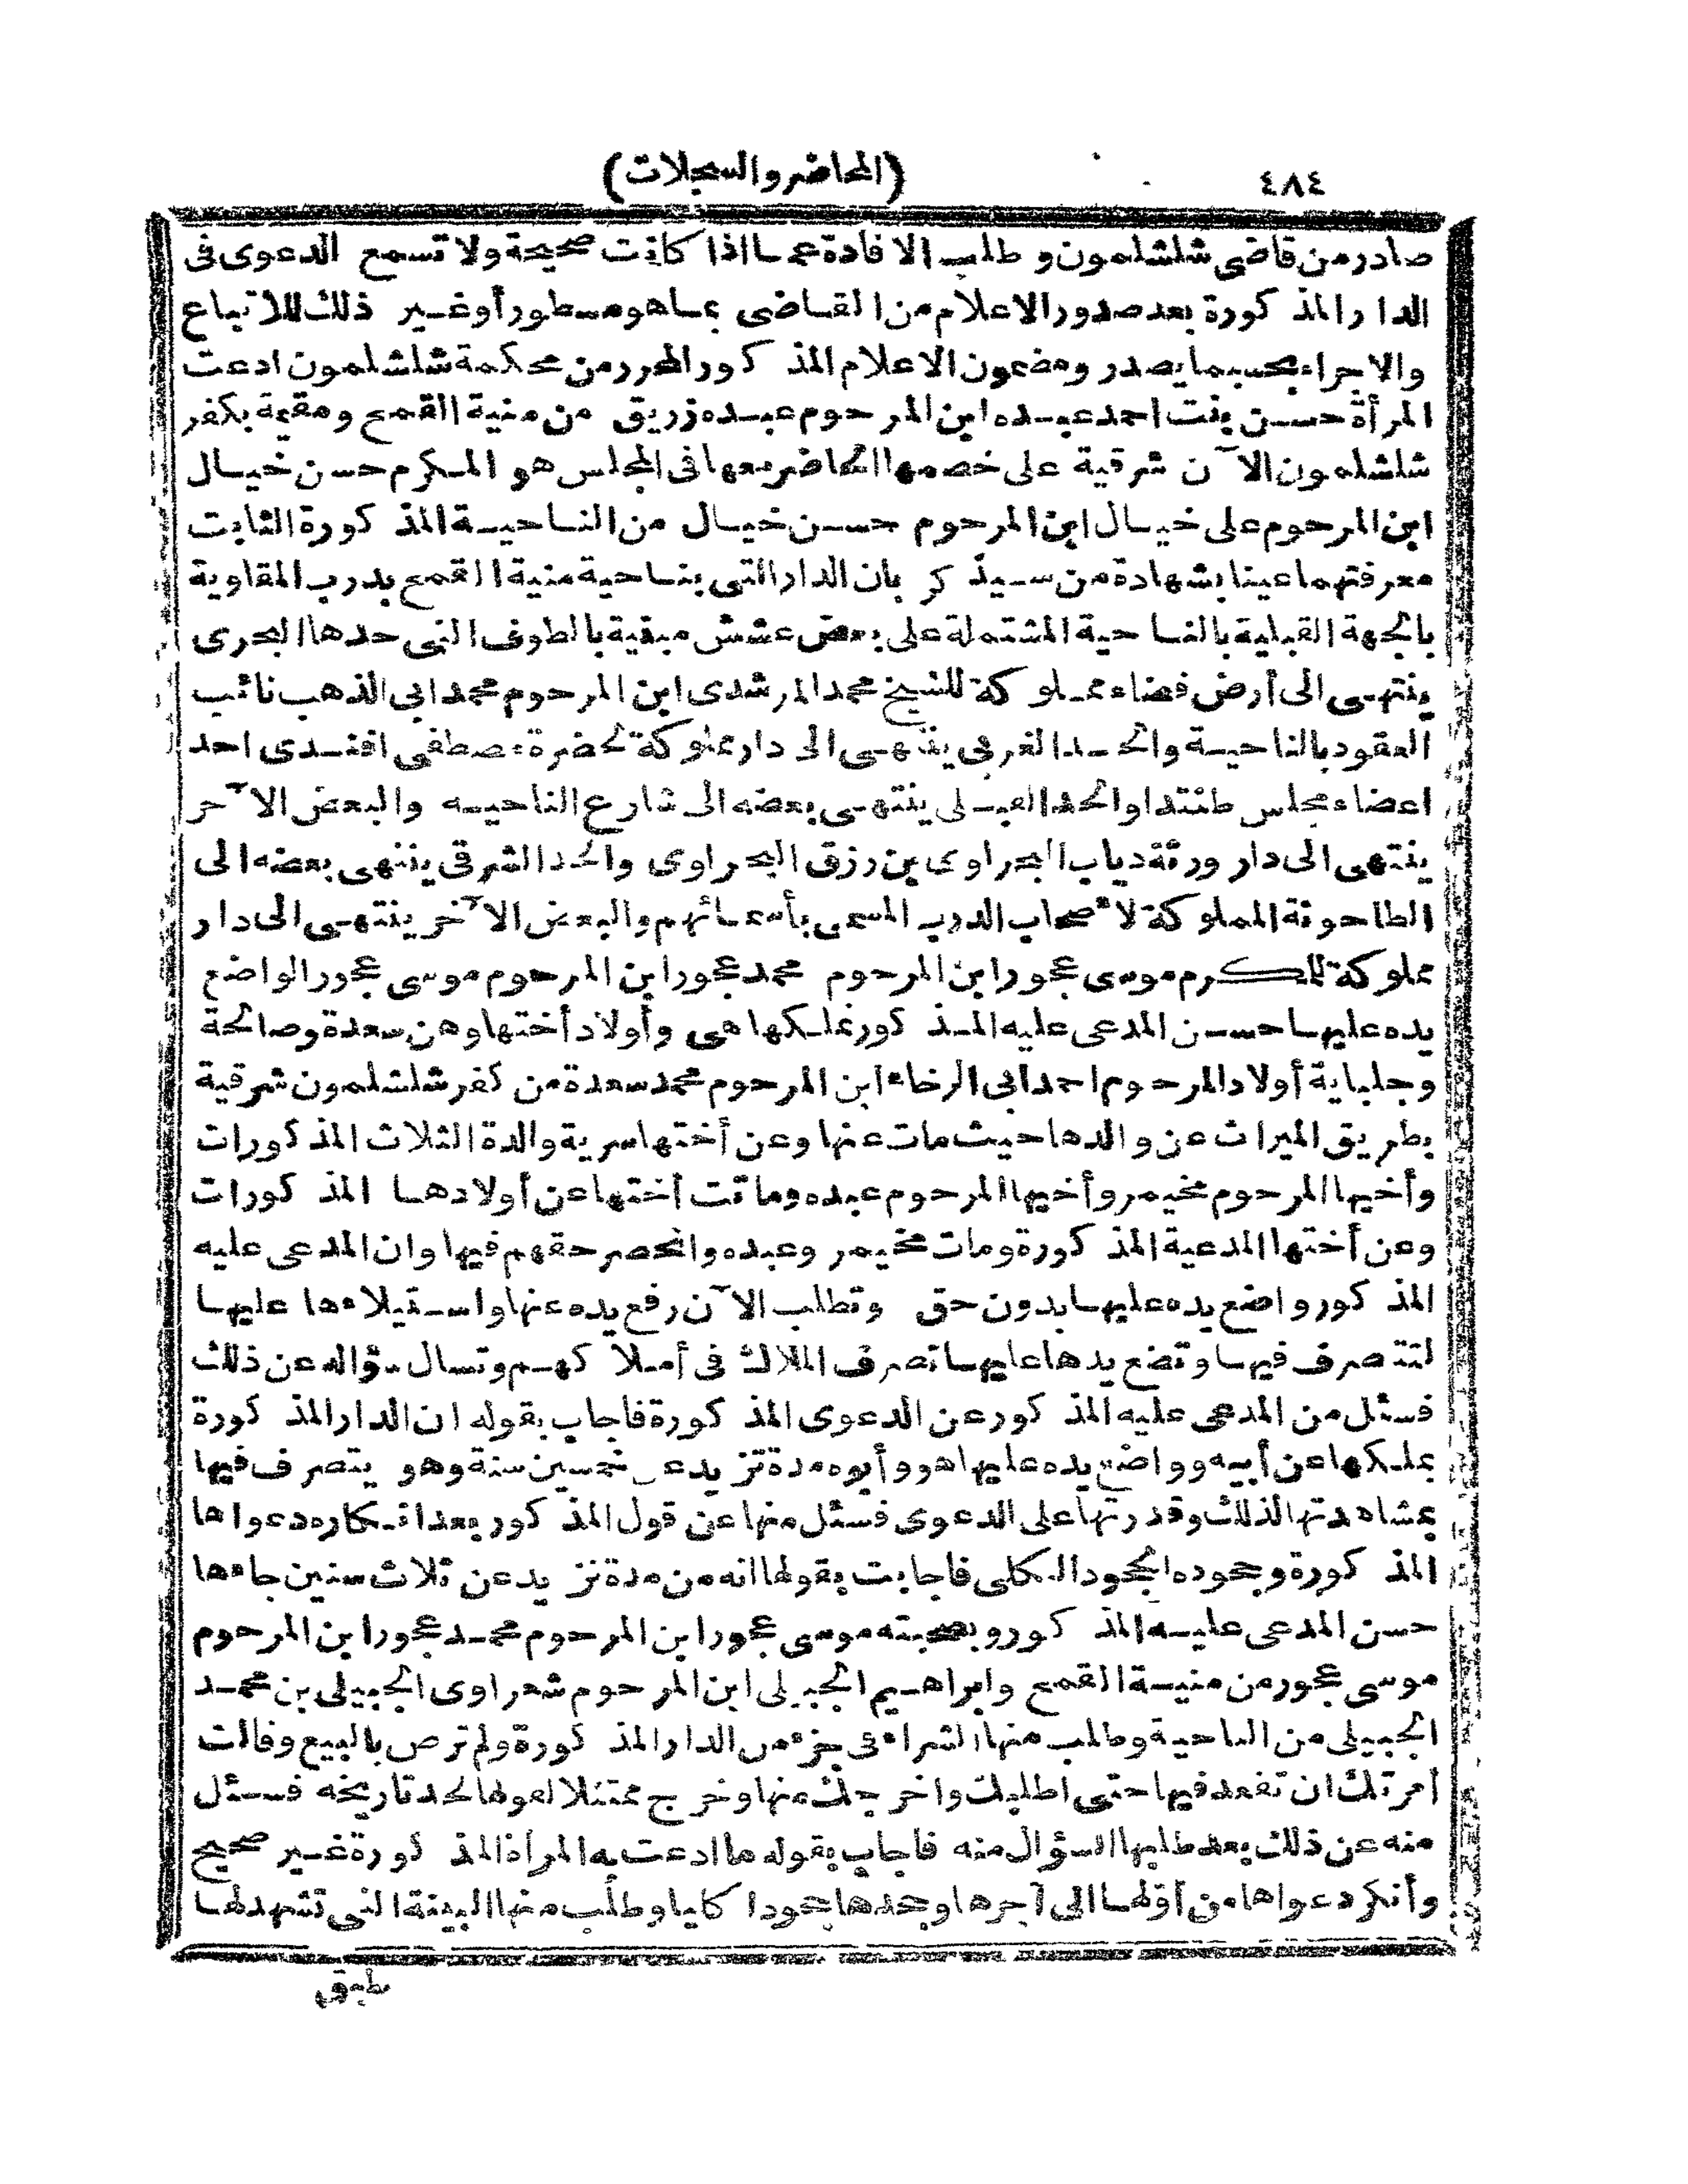 ٤٨٤
(المحاضر والسجلات)
صادر من قاضى شلشلمون وطلب الافادة عما اذا كانت صحيحة ولا تسمع الدعوى فى
الدار المذكورة بعد صدور الاعلام من القاضى بما هو مسطور أو غير ذلك للاتباع
والاجراء بحسب ما يصدر ومضمون الاعلام المذكور المحرر من محكمة شلشلمون ادعت
المرأة حسن بنت احمد عبده ابن المرحوم عبده زريق من منية القمح ومقيمة بكفر
شلشلمون الآن شرقية على خصمها الحاضر معها فى المجلس هو المكرم حسن خيال
ابن المرحوم على خيال ابن المرحوم حسن خيال من الناحية المذكورة الثابت
معرفتهما عينا بشهادة من سيذكر بان الدار التى بناحية منية القمح بدرب المقاوية
بالجهة القبلية بالناحية المشتملة على بعض عشش مبنية بالطوف التى حدها البحرى
ينتهى الى أرض فضاء مملوكة للشيخ محمد المرشدى ابن المرحوم محمد ابى الذهب نائب
العقود بالناحية والحد الغربى ينتهى الى دار مملوكة لحضرة مصطفى افندى احد
اعضاء مجلس طنتدا والحد القبلى ينتهى بعضه الى شارع الناحيه والبعض الآخر
ينتهى الى دار ورثة دياب البحراوى بن رزق البحراوى والحد الشرقى ينتهى بعضه الى
الطاحونة المملوكة لاصحاب الدرب المسمى بأسمائهم والبعض الآخر ينتهى الى دار
مملوكة للمكرم موسى عجور ابن المرحوم محمد عجور ابن المرحوم موسى عجور الواضع
يده عليها حسن المدعى عليه المذكور تملكها هى وأولاد أختها وهن سعدة وصالحة
وجلباية أولاد المرحوم احمد ابى الرخاء ابن المرحوم محمد سعدة من كفر شلشلمون شرقية
بطريق الميراث عن والدها حيث مات عنها وعن أختها سرية والدة الثلاث المذكورات
وأخيها المرحوم مخيمر وأخيها المرحوم عبده وماتت أختها عن أولادها المذكورات
وعن أختها المدعية المذكورة ومات مخيمر وعبده وانحصر حقهم فيها وان المدعى عليه
المذكور واضع يده عليها بدون حق وتطلب الآن رفع يده عنها واستيلاءها عليها
لتتصرف فيها وتضع يدها عليها تصرف الملاك فى أملاكهم وتسال سؤاله عن ذلك
فسئل من المدعى عليه المذكور عن الدعوى المذكورة فاجاب بقوله ان الدار المذكورة
بملكها عن أبيه وواضع يده عليها هو وأبوه مدة تزيد عن خمسين سنة وهو يتصرف فيها
بمشاهدتها لذلك وقدرتها على الدعوى فسئل منها عن قول المذكور بعد انكاره دعواها
المذكورة وجحوده الجحود الكلى فاجابت بقولها انه من مدة تزيد عن ثلاث سنين جاءها
حسن المدعى عليه المذكور وبصحبته موسى عجور ابن المرحوم محمد عجور ابن المرحوم
موسى عجور من منية القمح وابراهيم الجبيلى ابن المرحوم شعراوى الجبيلى بن محمد
الجبيلى من الناحية وطلب منها الشراء فى جزء من الدار المذكورة ولم ترض بالبيع وقالت
أمرتك ان تقعد فيها حتى اطلبك واخرجك منها وخرج ممتثلا لقولها لحد تاريخه فسئل
منه عن ذلك بعد طلبها السؤال منه فاجاب بقوله ما ادعت به المرأة المذكورة غير صحيح
وأنكر دعواها من أولها الى آخرها وجحدها جحودا كليا وطلب منها البينة التى تشهد لها
طبق